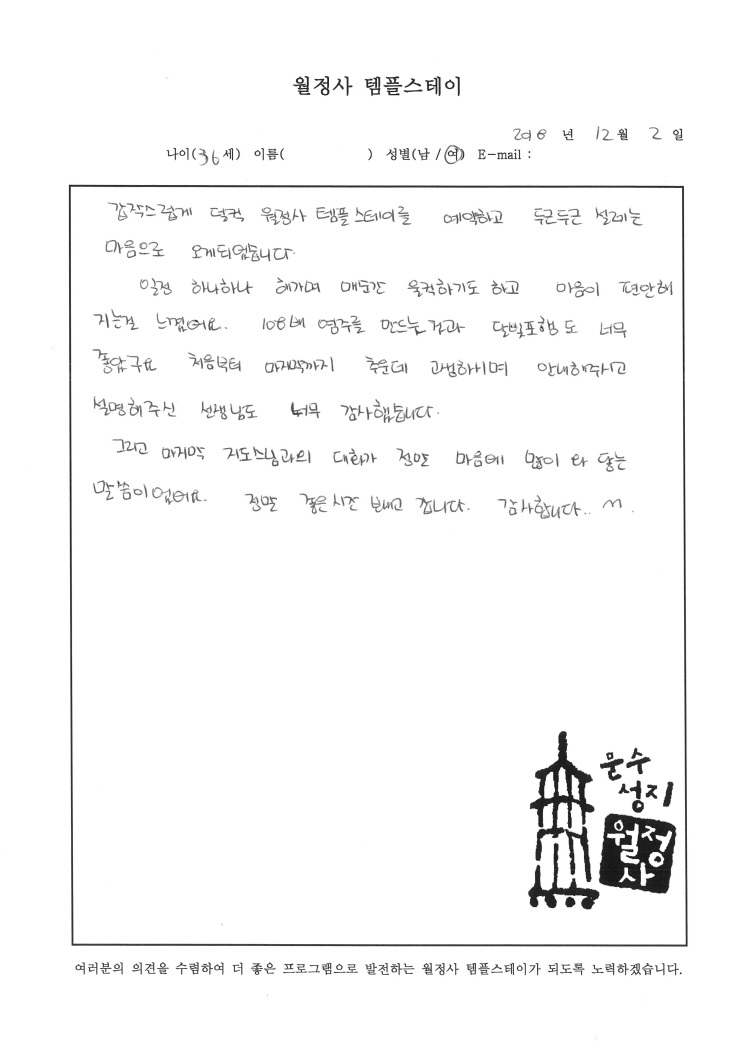 월정사 템플스테이
2018 년 12월 2일
나이(36세) 이름( ) 성별(남 / 여) E-mail :
갑작스럽게 덜컥 월정사 템플 스테이를 예약하고 두근두근 설레는
마음으로 오게되었습니다.
일정 하나하나 해가며 매순간 울컥하기도 하고 마음이 편안해
지는걸 느꼈어요. 108배 염주를 만드는것과 달빛포행도 너무
좋았구요 처음부터 마지막까지 추운데 고생하시며 안내해주시고
설명해주신 선생님도 너무 감사했습니다.
그리고 마지막 지도스님과의 대화가 정말 마음에 많이 와 닿는
말씀이었어요. 정말 좋은시간 보내고 갑니다. 감사합니다.. ^^.
문수
성지
월정
사
여러분의 의견을 수렴하여 더 좋은 프로그램으로 발전하는 월정사 템플스테이가 되도록 노력하겠습니다.